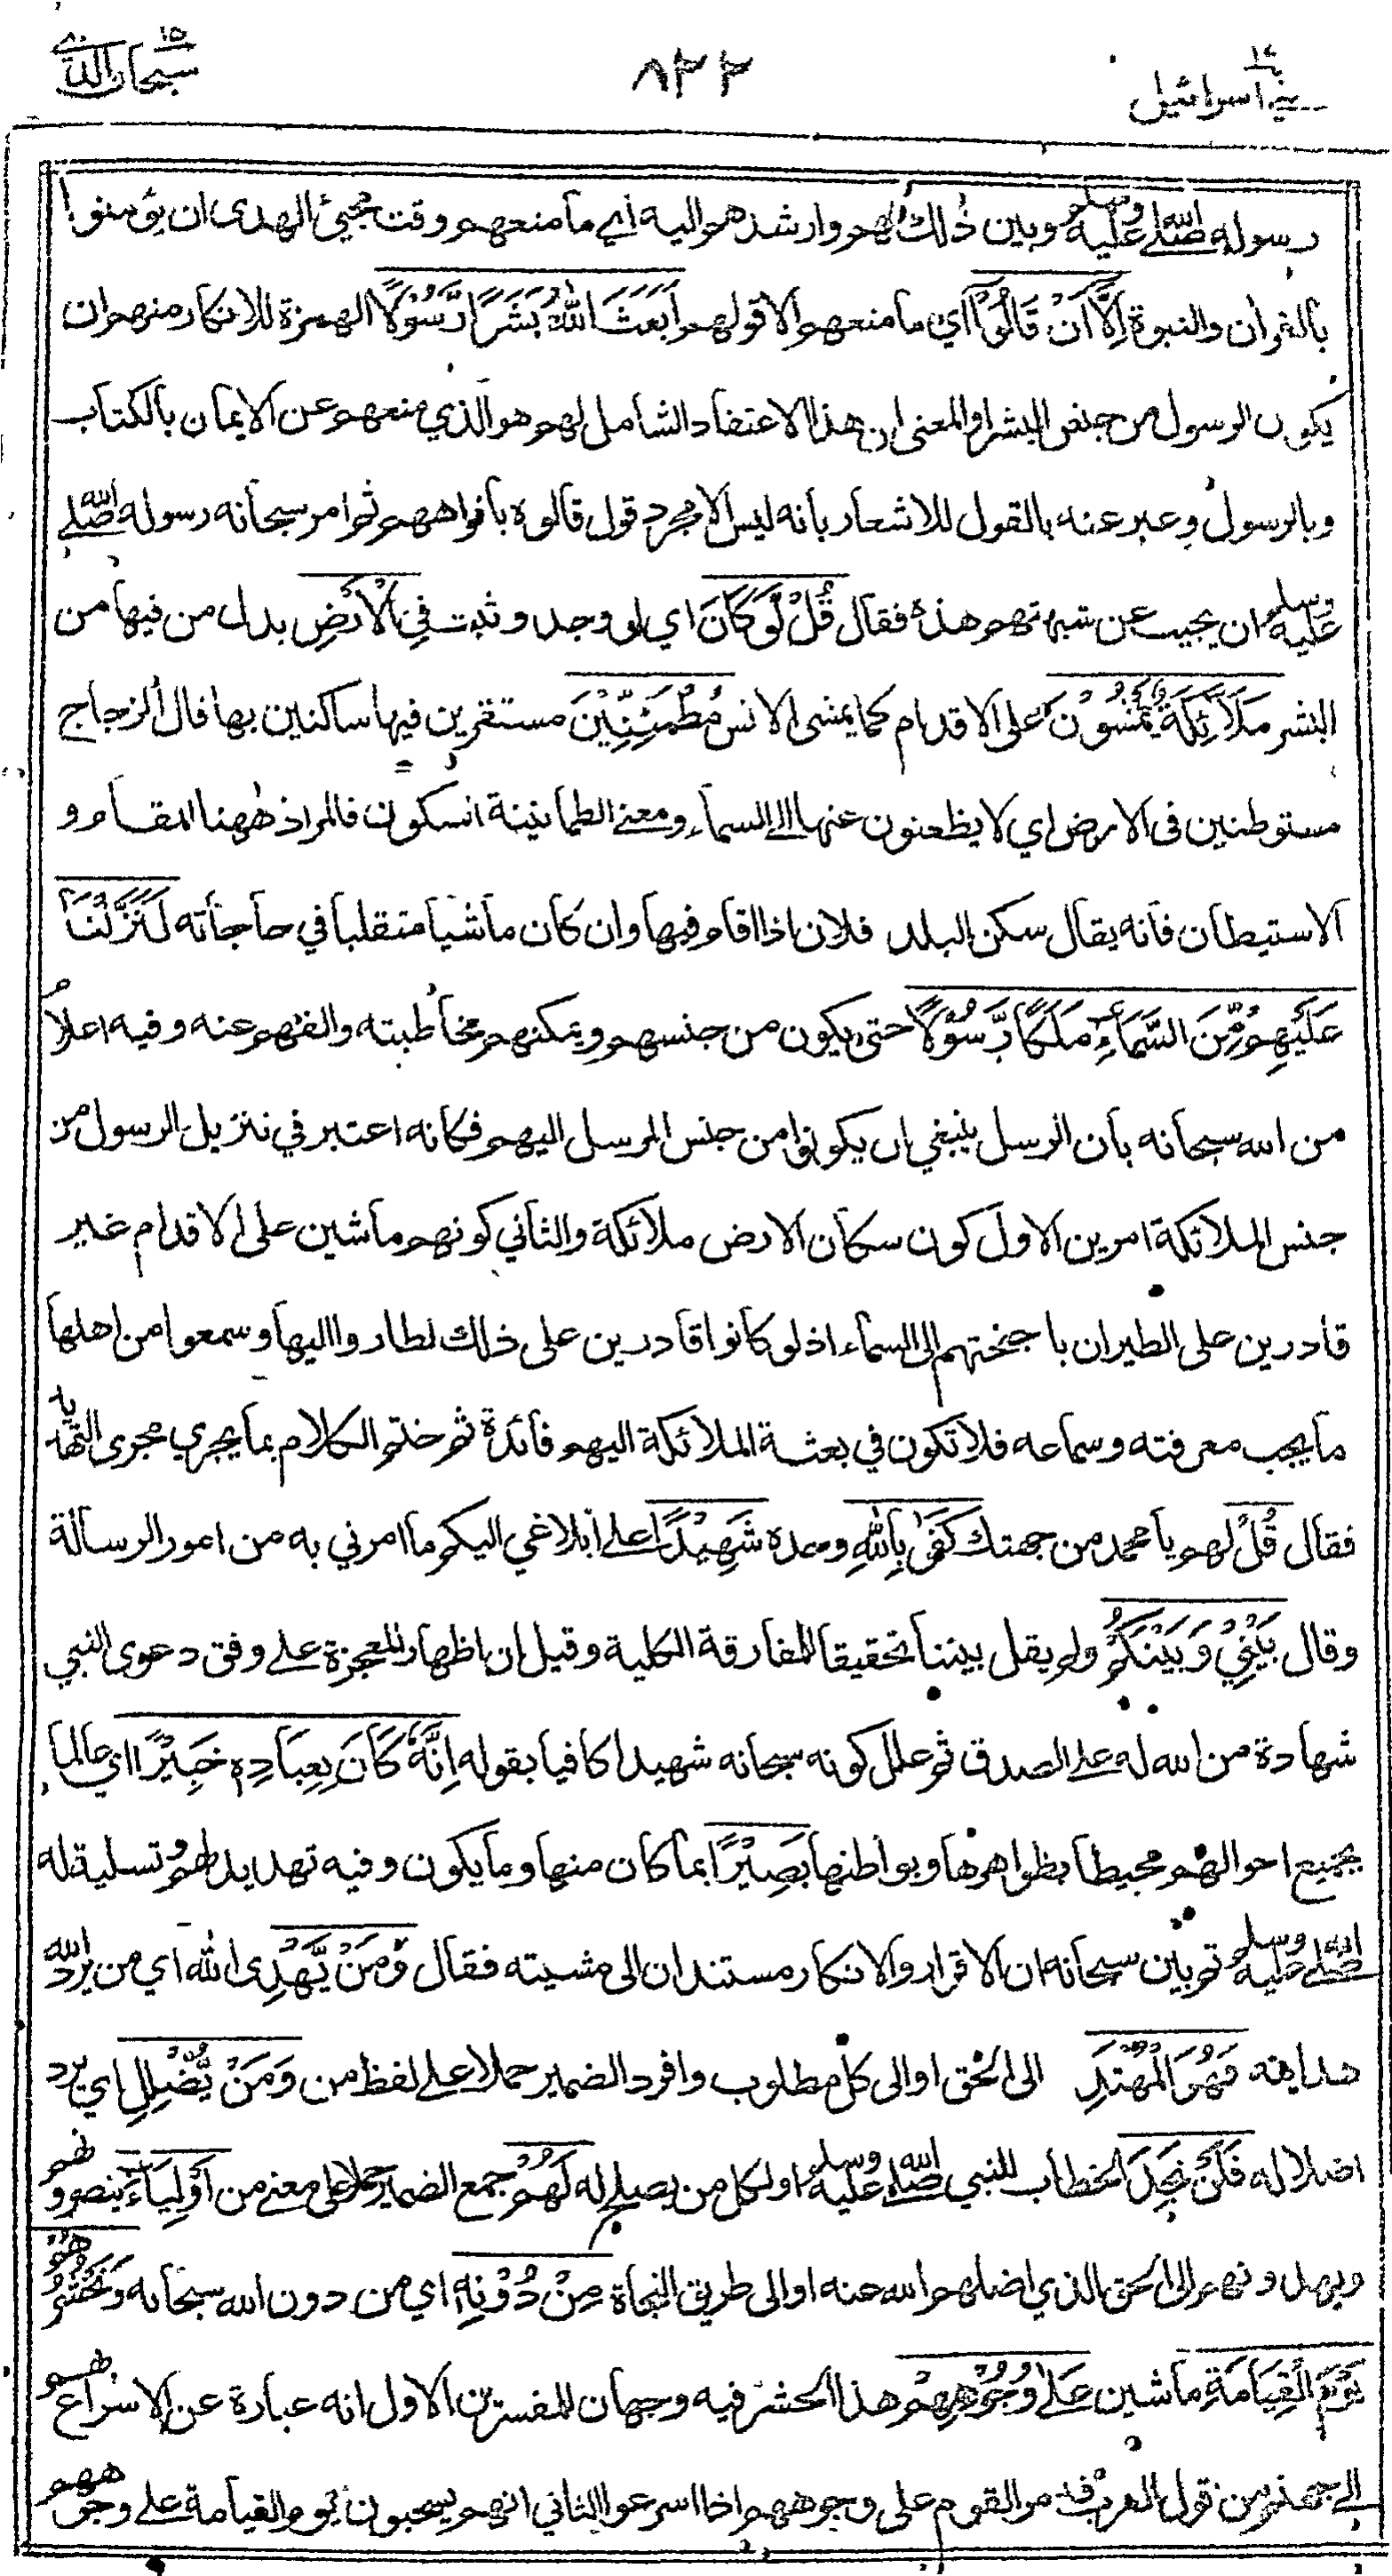 سبحان الذي ١٥
٨٢٢
بني اسرائيل ١٧
رسوله صلى الله عليه وسلم وبين ذلك لهم وارشدهم اليه اي ما منعهم وقت مجيئ الهدى ان يؤمنوا
بالقران والنبوة اِلَّا اَنْ قَالُوْا اي ما منعهم الا قولهم اَبَعَثَ اللّٰهُ بَشَرًا رَّسُوْلًا الهمزة للانكار منهم ان
يكون الرسول من جنس البشر والمعنى ان هذا الاعتقاد الشامل لهم هو الذي منعهم عن الايمان بالكتاب
وبالرسول وعبر عنه بالقول للاشعار بانه ليس الا مجرد قول قالوه بافواههم ثم امر سبحانه رسوله صلى الله
عليه وسلم ان يجيب عن شبهتهم هذه فقال قُلْ لَّوْ كَانَ اي لو وجد وثبت فِي الْاَرْضِ بدل من فيها من
البشر مَلَآئِكَةٌ يَّمْشُوْنَ على الاقدام كما يمشى الانس مُطْمَئِنِّيْنَ مستقرين فيها ساكنين بها قال الزجاج
مستوطنين فى الارض اي لا يظعنون عنها الى السماء ومعنى الطمانينة السكون فالمراد ههنا المقام و
الاستيطان فانه يقال سكن البلد فلان اذا اقام فيها وان كان ماشيا متقلبا في حاجاته لَنَزَّلْنَا
عَلَيْهِمْ مِّنَ السَّمَآءِ مَلَكًا رَّسُوْلًا حتى يكون من جنسهم ويمكنهم مخاطبته والفهم عنه وفيه اعلام
من الله سبحانه بان الرسل ينبغي ان يكونوا من جنس المرسل اليهم فكانه اعتبر في تنزيل الرسول من
جنس الملائكة امرين الاول كون سكان الارض ملائكة والثاني كونهم ماشين على الاقدام غير
قادرين على الطيران باجنحتهم الى السماء اذ لو كانوا قادرين على ذلك لطاروا اليها وسمعوا من اهلها
ما يجب معرفته وسماعه فلا تكون في بعثة الملائكة اليهم فائدة ثم ختم الكلام بما يجري مجرى التهديد
فقال قُلْ لهم يا محمد من جهتك كَفٰى بِاللّٰهِ وحده شَهِيْدًا على ابلاغي اليكم ما امرني به من امور الرسالة
وقال بَيْنِيْ وَبَيْنَكُمْ ولم يقل بيننا تحقيقا للمفارقة الكلية وقيل ان اظهار المعجزة على وفق دعوى النبي
شهادة من الله له على الصدق ثم علل كونه سبحانه شهيدا كافيا بقوله اِنَّهٗ كَانَ بِعِبَادِهٖ خَبِيْرًا اي عالما
بجميع احوالهم محيطا بظواهرها وبواطنها بَصِيْرًا بما كان منها وما يكون وفيه تهديد لهم وتسلية له
صلى الله عليه وسلم ثم بين سبحانه ان الاقرار والانكار مستندان الى مشيته فقال وَمَنْ يَّهْدِى الله اي من يرد الله
هدايته فَهُوَ الْمُهْتَدِ الى الحق او الى كل مطلوب وافرد الضمير حملا على لفظ من وَمَنْ يُّضْلِلْ اي يرد
اضلاله فَلَنْ تَجِدَ الخطاب للنبي صلى الله عليه وسلم او لكل من يصلح له لَهُمْ جمع الضمير حملا على معنى من اَوْلِيَآءَ ينصرونهم
ويهدونهم الى الحق الذي اضلهم الله عنه او الى طريق النجاة مِنْ دُوْنِهٖ اي من دون الله سبحانه وَنَحْشُرُهُمْ
يَوْمَ الْقِيَامَةِ ماشين عَلٰى وُجُوْهِهِمْ هذا الحشر فيه وجهان للمفسرين الاول انه عبارة عن الاسراع بهم
الى جهنم من قول العرب قد مر القوم على وجوههم اذا اسرعوا الثاني انهم يسحبون يوم القيامة على وجوههم